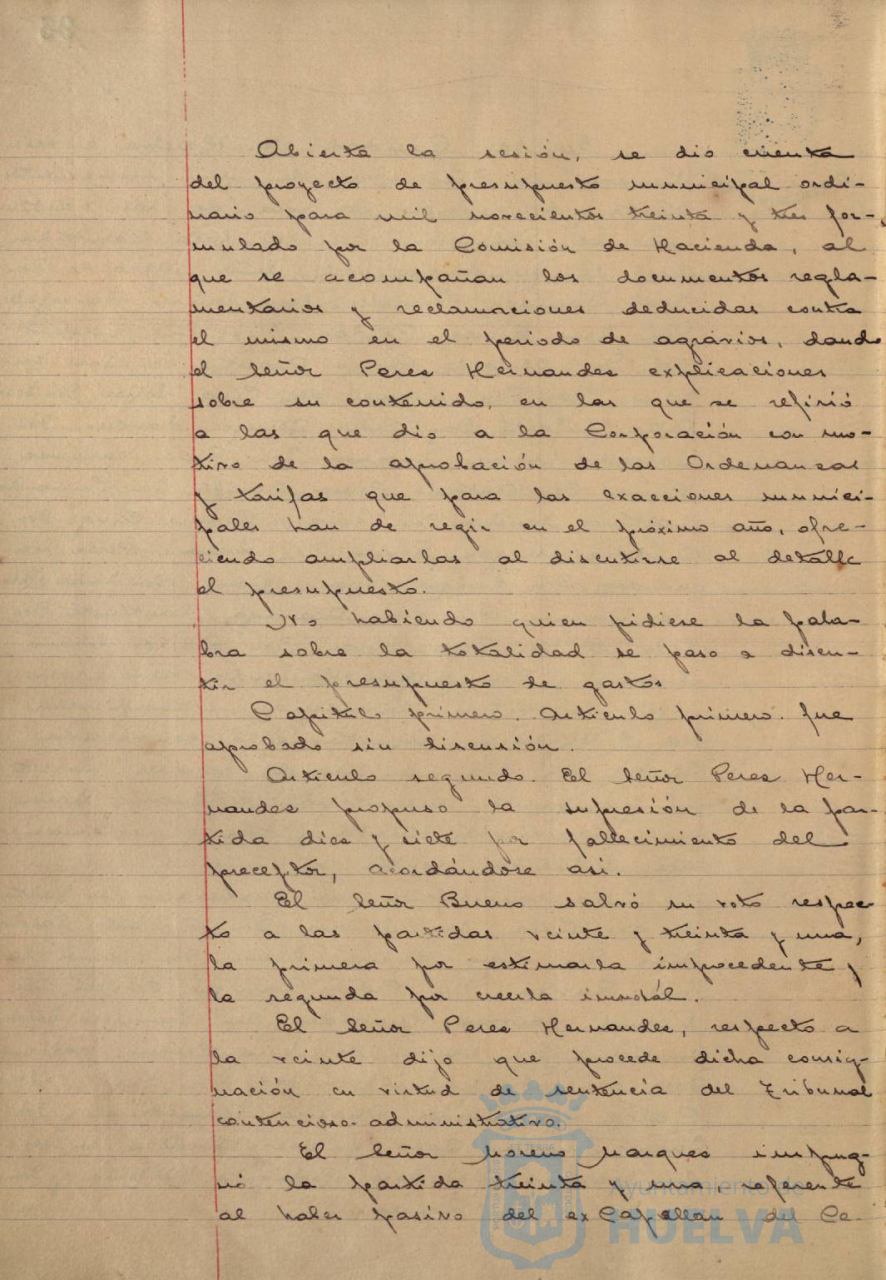 Abierta la sesión, se dio cuenta
del proyecto de presupuesto municipal ordi-
nario para mil novecientos treinta y tres for-
mulado por la Comisión de Hacienda, al
que se acompañan los documentos regla-
mentarios y reclamaciones deducidas contra
el mismo en el periodo de agravios, dando
el Señor Peres Hernandes explicaciones
sobre su contenido, en las que se refirió
a las que dio a la Corporación con mo-
tivo de la aprobación de las Ordenanzas
y tarifas que para las exacciones munici-
pales han de regir en el próximo año, ofre-
ciendo ampliarlas al discutirse al detalle
el presupuesto.
No habiendo quien pidiese la pala-
bra sobre la totalidad se paso a discu-
tir el presupuesto de gastos
Capitulo primero. Articulo primero. fue
aprobado sin discusión.
Articulo segundo. El Señor Peres Her-
nandes propuso la supresión de la par-
tida dies y siete por fallecimiento del
preceptor, acordándose asi.
El Señor Bueno salvó su voto respec-
to a las partidas veinte y treinta y una,
la primera por estimarla improcedente y
la segunda por creerla inmorál.
El Señor Peres Hernandes, respecto a
la veinte dijo que procede dicha consig-
nación en virtud de sentencia del Tribunal
contencioso-administrativo.
El Señor Moreno Marques impug-
nó la partida treinta y una, referente
al haber pasivo del ex Capellan del Ce-
Ayuntamiento de
HUELVA